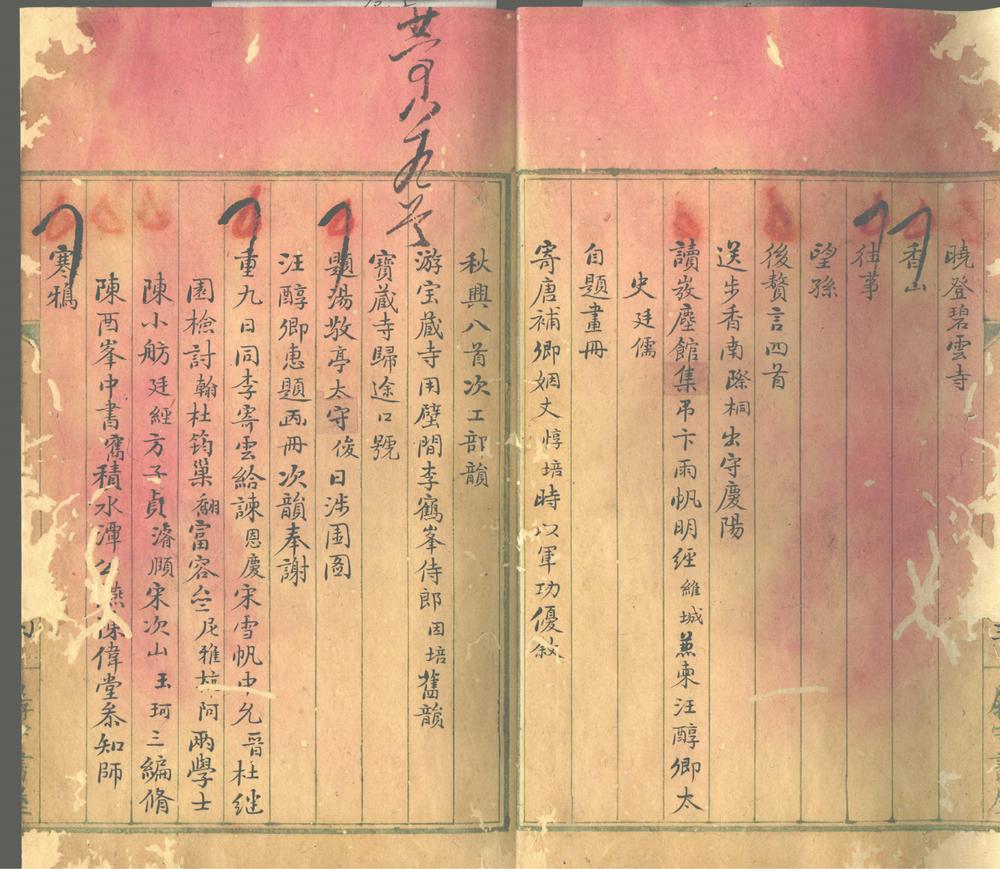 曉登碧雲寺
香山
往事
望孫
後贅言四首
送步香南際桐出守慶陽
讀發塵館集弔卞雨帆明經維城兼柬汪醇卿太
史廷儒
自題畫冊
寄唐補卿姻丈惇培時以軍功優敘
秋興八首次工部韻
游宝蔵寺用壁間李鶴峯侍郎因培舊韻
寶蔵寺歸途口號
題湯敬亭太守俊日涉園圖
汪醇卿惠題画冊次韻奉謝
重九日同李寄雲給諫恩慶宋雪帆中允晉杜继
園檢討翰杜筠巢翻富容尼雅杭阿兩學士
陳小舫廷經方子貞濬頤宋次山玉珂三編脩
陳酉峯中書舊積水潭偉堂叅知師
寒鴉